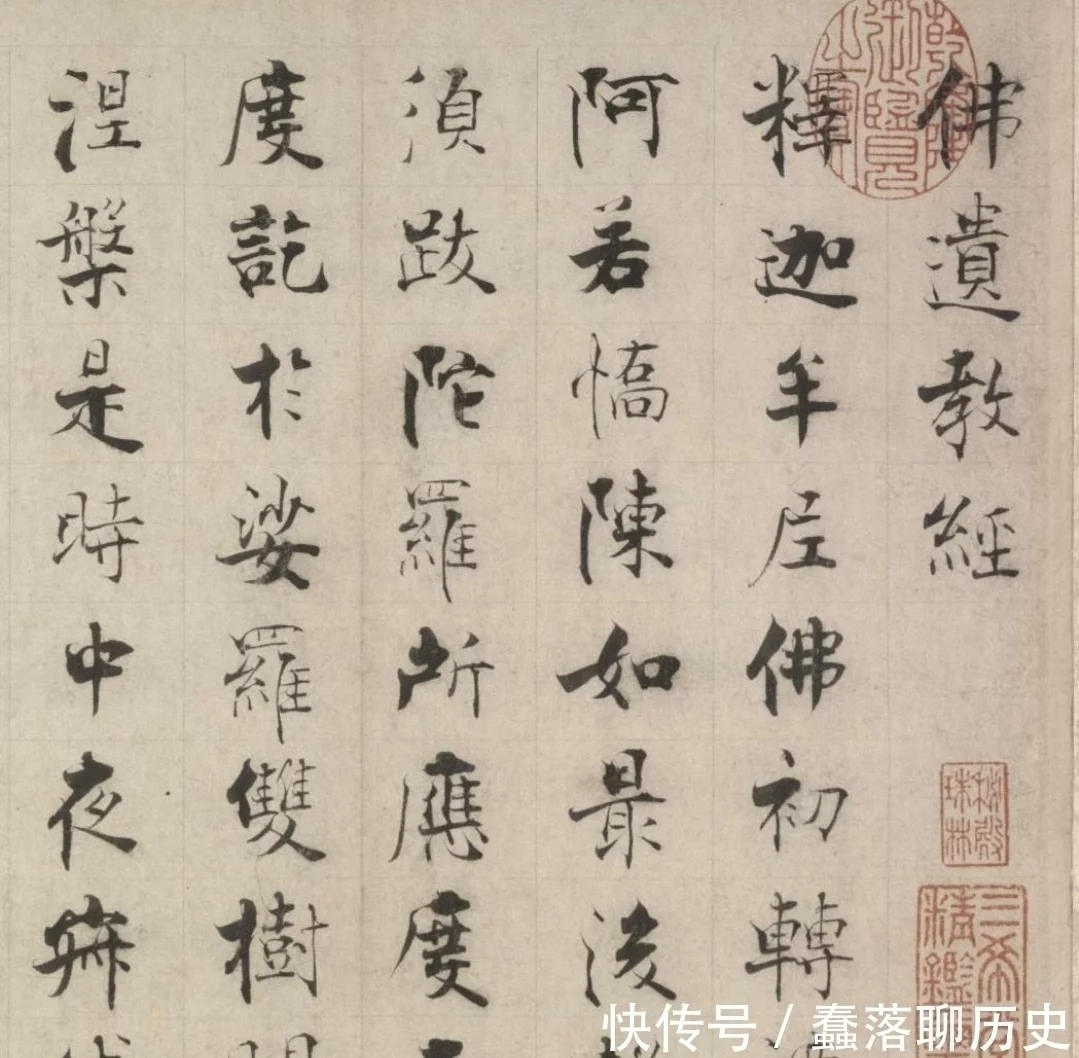 佛遺教經
釋迦牟尼佛初轉
阿若憍陳如最後
須跋陀羅所應度
度訖於娑羅雙樹
涅槃是時中夜寂
乾隆御覽之寶
秘殿珠林
三希
精鑑
快传号 / 蠢落聊历史